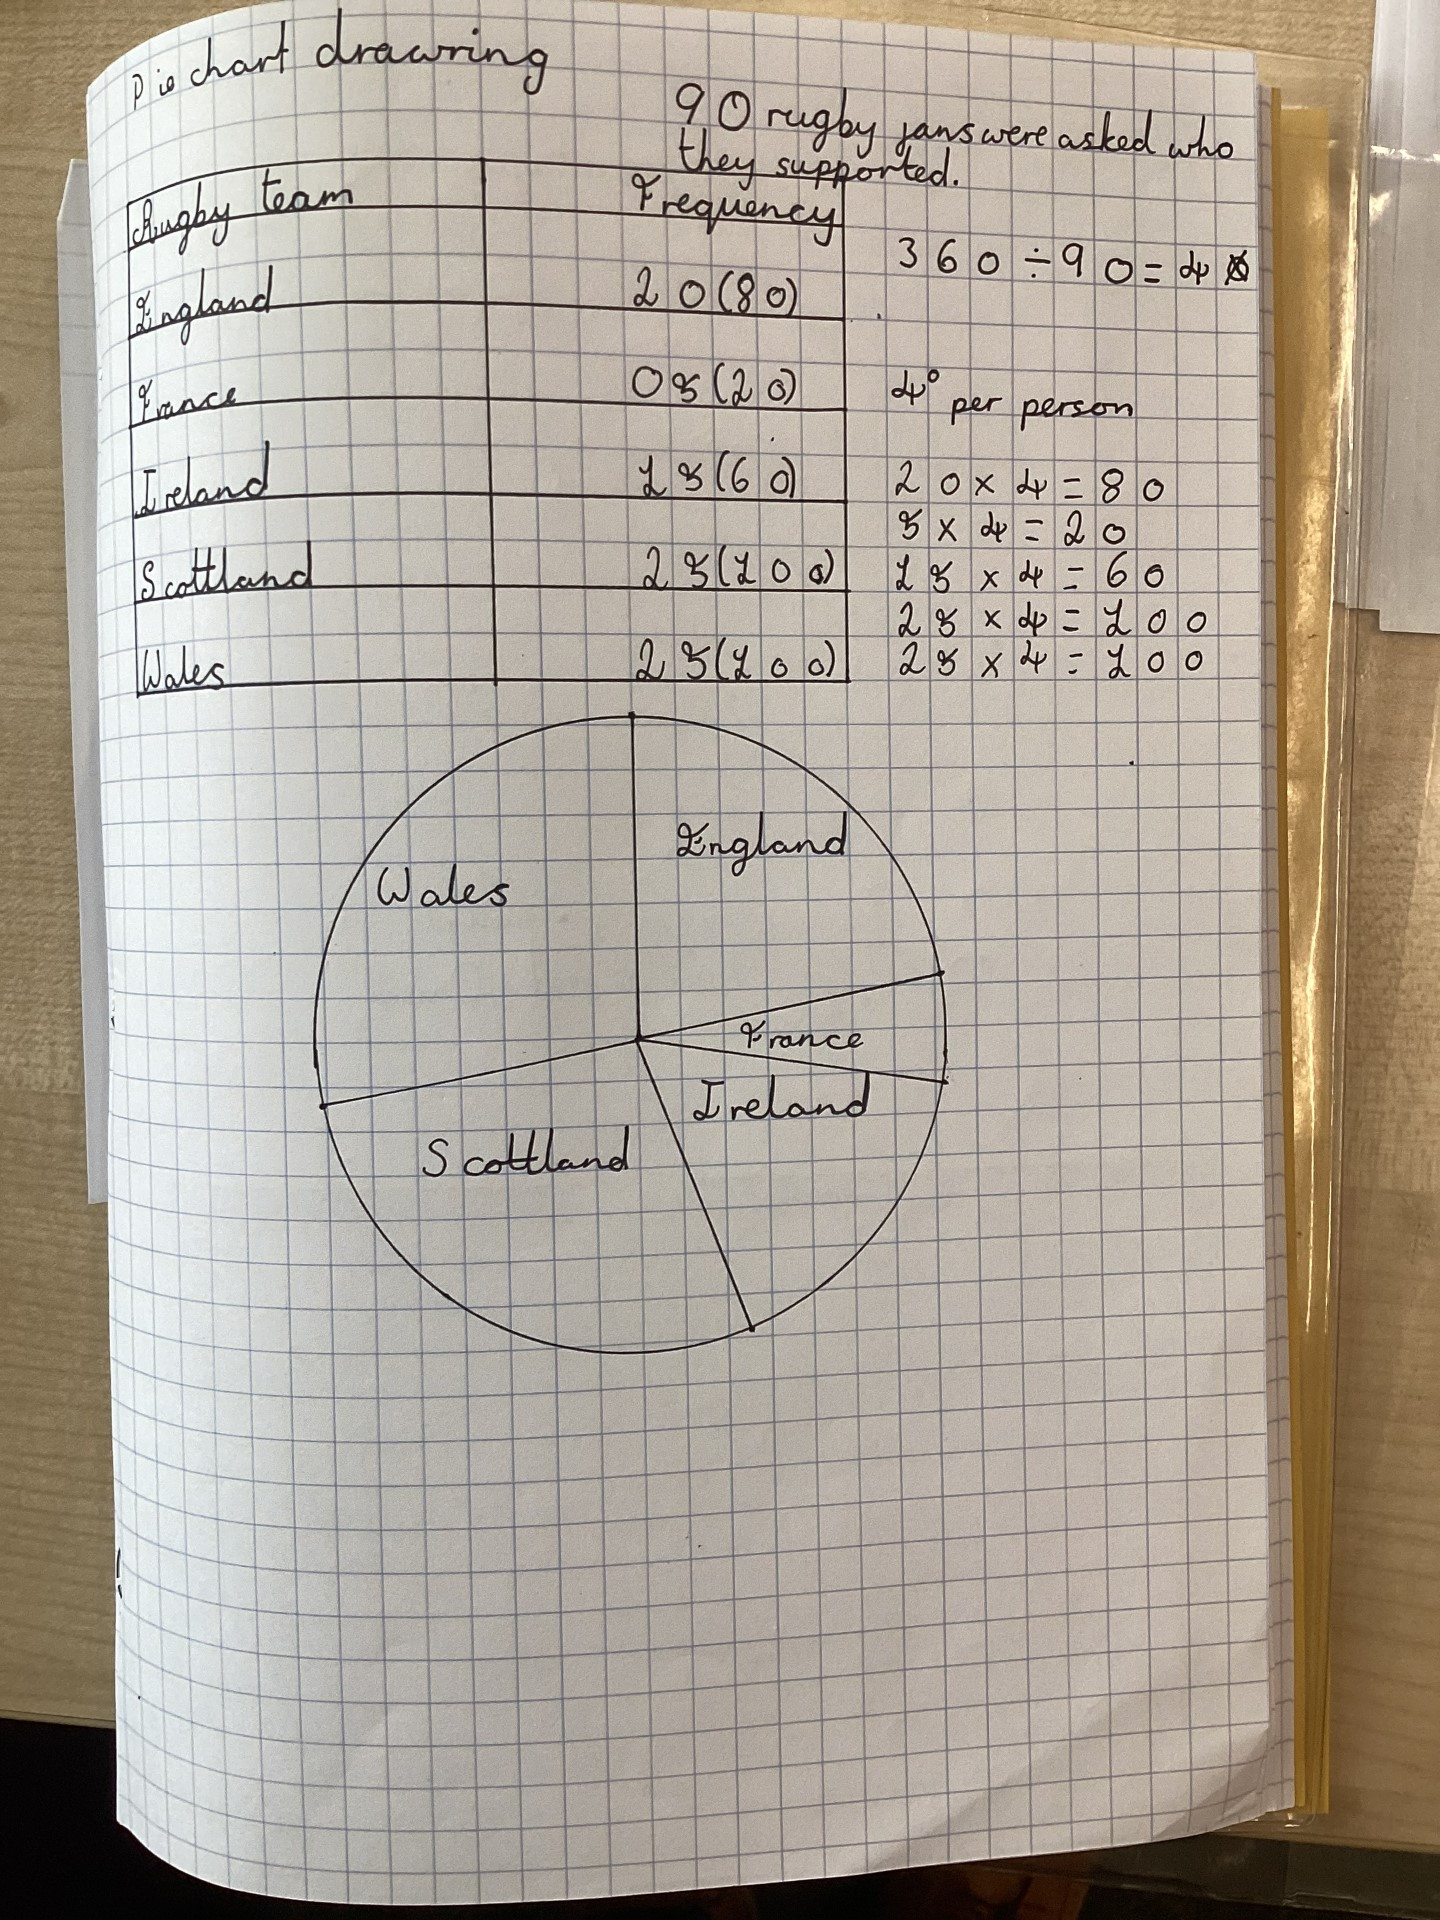 Pie chart drawring
90 rugby fans were asked who
they supported.
Rugby team Frequency
360÷90=4
England 20(80)
France 05(20)
4° per person
Ireland 15(60)
20×4=80
5×4=20
Scottland 25(100)
15×4=60
25×4=100
Wales 25(100)
25×4=100
England
Wales
France
Ireland
Scottland